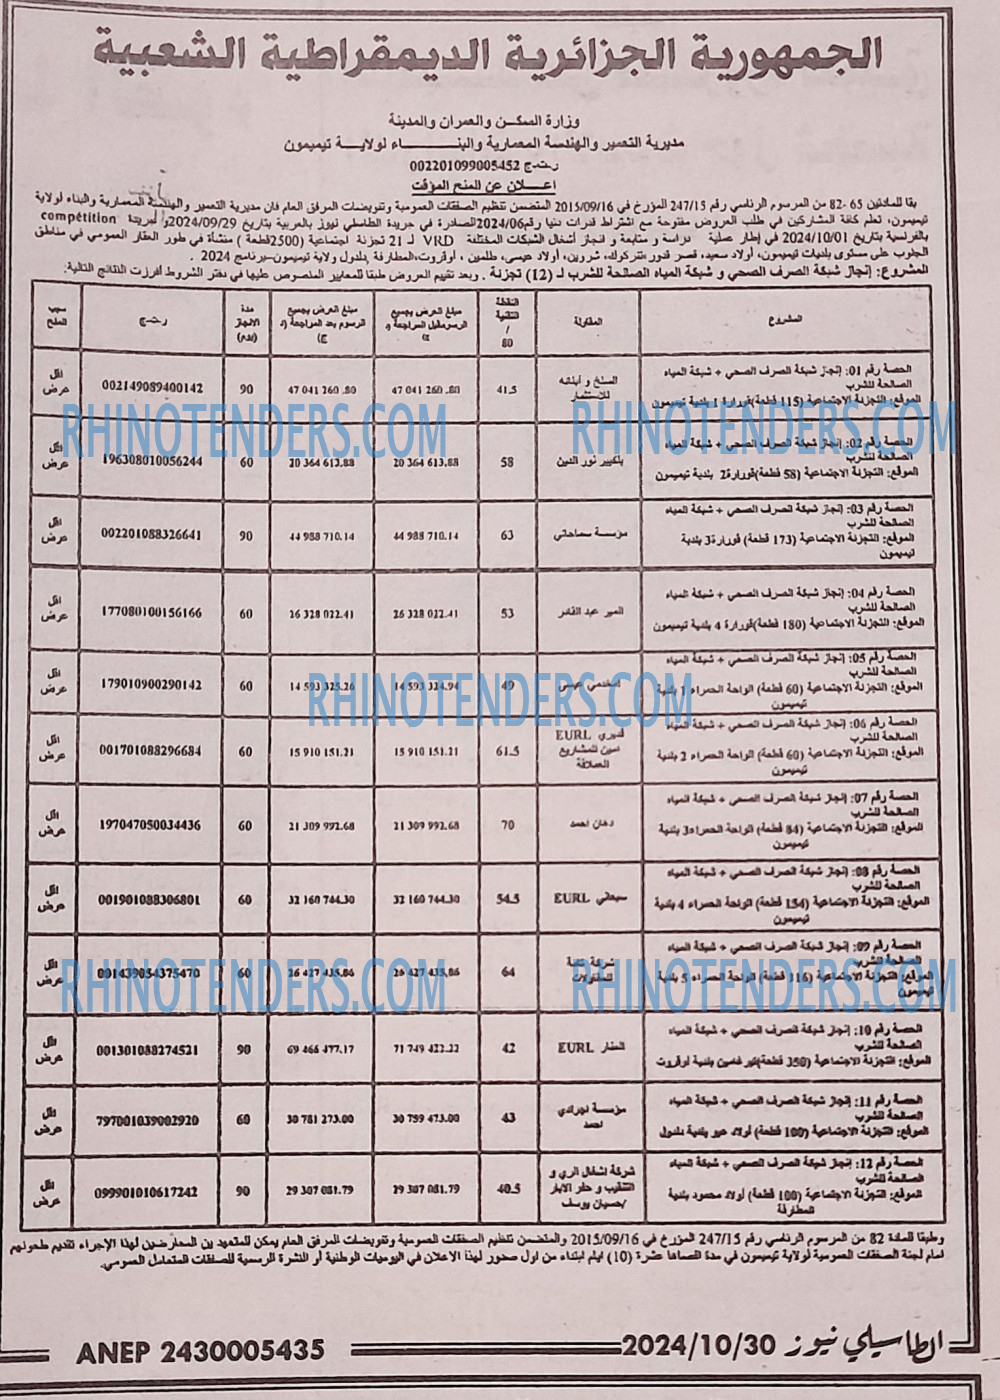 الجمهورية الجزائرية الديمقراطية الشعبية
وزارة السكن والعمران والمدينة
مديرية التعمير والهندسة المعمارية والبناء لولاية تيميمون
ر-ت-ج 002201099005452
اعلان عن المنح المؤقت
بقا للمادتين 65 -82 من المرسوم الرئاسي رقم 247/15 المؤرخ في 2015/09/16 المتضمن تنظيم الصفقات العمومية وتفويضات المرفق العام فان مديرية التعمير والهندسة المعمارية والبناء لولاية
تيميمون، تعلم كافة المشاركين في طلب العروض مفتوحة مع اشتراط قدرات دنيا رقم 2024/06الصادرة في جريدة الطاسلي نيوز بالعربية بتاريخ 2024/09/29 و لجريدة compétition
بالفرنسية بتاريخ 2024/10/01 في إطار عملية دراسة و متابعة و انجاز أشغال الشبكات المختلفة VRD لـ 21 تجزئة اجتماعية (2500قطعة ) منشأة في طور العقار العمومي في مناطق
الجنوب على مستوى بلديات تيميمون، أولاد سعيد، قصر قدور،تنركوك، شروين، أولاد عيسى، طلمين ، أوقروت،المطارفة ,لدلول ولاية تيميمون–برنامج 2024 .
المشروع: إنجاز شبكة الصرف الصحي و شبكة المياه الصالحة للشرب لـ (12) تجزئة . وبعد تقييم العروض طبقا للمعايير المنصوص عليها في دفتر الشروط أفرزت النتائج التالية:
المشروع المقاولة النقطة التقنية / 80 مبلغ العرض بجميع الرسوم قبل المراجعة (د ج) مبلغ العرض بجميع الرسوم بعد المراجعة (د ج) مدة الانجاز (يوم) ر-ت-ج سبب المنح
الحصة رقم 01: إنجاز شبكة الصرف الصحي + شبكة المياه
الصالحة للشرب
الموقع: التجزئة الاجتماعية (115 قطعة)قورارة 1 بلدية تيميمون
و أبنائه للاستثمار 41.5 47 041 260 .80 47 041 260 .80 90 002149089400142 اقل عرض
الحصة رقم 02: إنجاز شبكة الصرف الصحي + شبكة المياه
الصالحة للشرب
الموقع: التجزئة الاجتماعية (58 قطعة)قورارة2 بلدية تيميمون
بلكبير نور الدين 58 20 364 613.88 20 364 613.88 60 196308010056244 اقل عرض
الحصة رقم 03: إنجاز شبكة الصرف الصحي + شبكة المياه
الصالحة للشرب
الموقع: التجزئة الاجتماعية (173 قطعة) قورارة3 بلدية
تيميمون
مؤسسة سماحاتي 63 44 988 710.14 44 988 710.14 90 002201088326641 اقل عرض
الحصة رقم 04: إنجاز شبكة الصرف الصحي + شبكة المياه
الصالحة للشرب
الموقع: التجزئة الاجتماعية (180 قطعة)قورارة 4 بلدية تيميمون
المير عبد القادر 53 26 328 022.41 26 328 022.41 60 177080100156166 اقل عرض
الحصة رقم 05: إنجاز شبكة الصرف الصحي + شبكة المياه
الصالحة للشرب
الموقع: التجزئة الاجتماعية (60 قطعة) الواحة الحمراء 1 بلدية
تيميمون
عيسى 49 14 593 324.94 14 593 325.26 60 179010900290142 اقل عرض
الحصة رقم 06: إنجاز شبكة الصرف الصحي + شبكة المياه
الصالحة للشرب
الموقع: التجزئة الاجتماعية (60 قطعة) الواحة الحمراء 2 بلدية
تيميمون
EURL قديري امين للمشاريع العملاقة 61.5 15 910 151.21 15 910 151.21 60 001701088296684 اقل عرض
الحصة رقم 07: إنجاز شبكة الصرف الصحي + شبكة المياه
الصالحة للشرب
الموقع: التجزئة الاجتماعية (84 قطعة) الواحة الحمراء3 بلدية
تيميمون
دهان احمد 70 21 309 992.68 21 309 992.68 60 197047050034436 اقل عرض
الحصة رقم 08: إنجاز شبكة الصرف الصحي + شبكة المياه
الصالحة للشرب
الموقع: التجزئة الاجتماعية (154 قطعة) الواحة الحمراء 4 بلدية
تيميمون
EURL سبحاني 54.5 32 160 744.30 32 160 744.30 60 001901088306801 اقل عرض
الحصة رقم 09: إنجاز شبكة الصرف الصحي + شبكة المياه
الصالحة للشرب
الموقع: التجزئة الاجتماعية (116 قطعة) الواحة الحمراء 5 بلدية
تيميمون
شركة للمقاولات 64 26 427 435.86 26 427 435.86 60 001439054375470 اقل عرض
الحصة رقم 10: إنجاز شبكة الصرف الصحي + شبكة المياه
الصالحة للشرب
الموقع: التجزئة الاجتماعية (350 قطعة) بلدية أوقروت
EURL 42 71 749 422.22 69 466 477.17 90 001301088274521 اقل عرض
الحصة رقم 11: إنجاز شبكة الصرف الصحي + شبكة المياه
الصالحة للشرب
الموقع: التجزئة الاجتماعية (100 قطعة) أولاد عبو بلدية دلدول
مؤسسة احمد 43 30 759 473.00 30 781 273.00 60 797001039002920 اقل عرض
الحصة رقم 12: إنجاز شبكة الصرف الصحي + شبكة المياه
الصالحة للشرب
الموقع: التجزئة الاجتماعية (100 قطعة) أولاد محمود بلدية
المطارفة
شركة اشغال الري و التنقيب و حفر الابار /حصيان يوسف 40.5 29 307 081.79 29 307 081.79 90 099901010617242 اقل عرض
وطبقا للمادة 82 من المرسوم الرئاسي رقم 247/15 المؤرخ في 2015/09/16 والمتضمن تنظيم الصفقات العمومية وتفويضات المرفق العام يمكن للمتعهدين المعارضين لهذا الإجراء تقديم طعونهم
امام لجنة الصفقات العمومية لولاية تيميمون في مدة اقصاها عشرة (10) ايام ابتداء من اول صدور لهذا الاعلان في اليوميات الوطنية أو النشرة الرسمية للصفقات المتعامل العمومي.
الطاسيلي نيوز 2024/10/30
ANEP 2430005435
RHINOTENDERS.COM
RHINOTENDERS.COM
RHINOTENDERS.COM
RHINOTENDERS.COM
RHINOTENDERS.COM